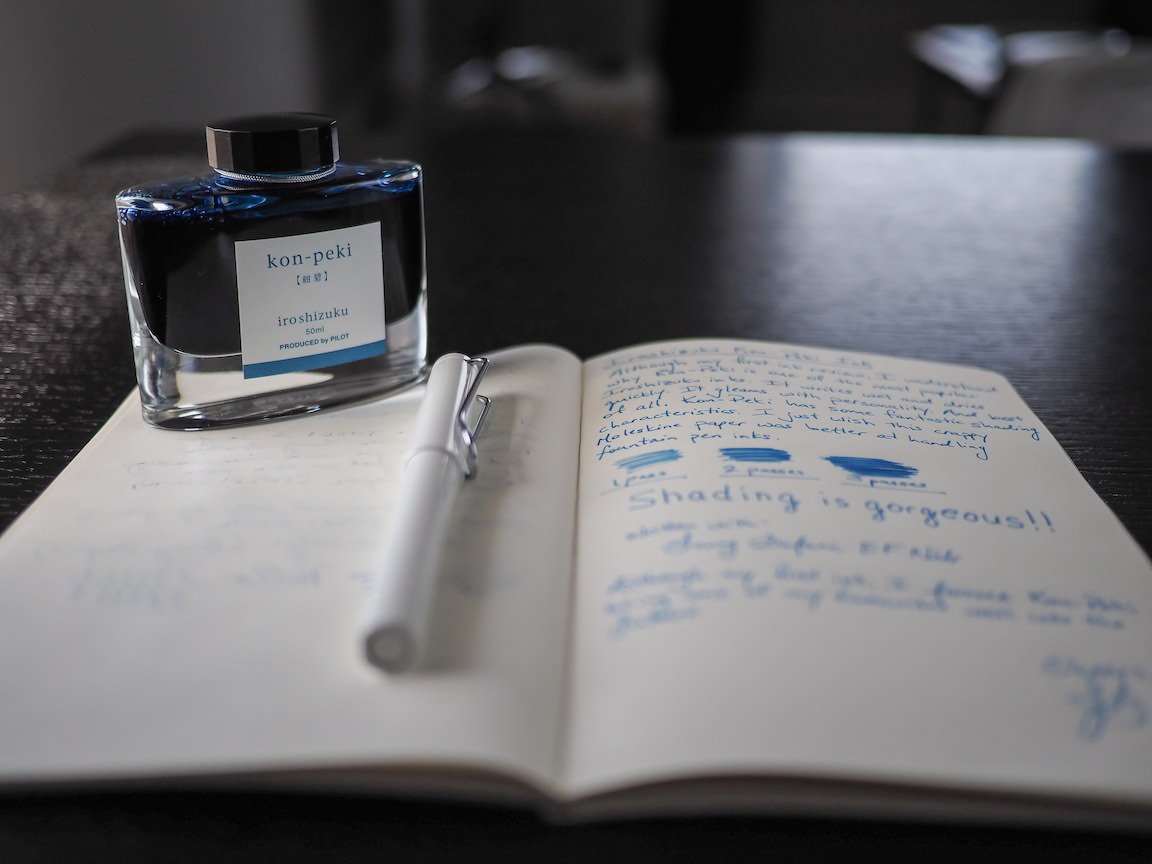 kon-peki
【紺碧】
iroshizuku
50ml
PRODUCED by PILOT
Iroshizuku Kon-Peki Ink
Although my first ink review, I understand
why Kon-Peki is one of the most popular
Iroshizuku inks. It writes wet and dries
quickly. It gleams with personality. And best
of all, Kon-Peki has some fantastic shading
characteristics. I just wish this crappy
Moleskine paper was better at handling
fountain pen inks.
1 pass 2 passes 3 passes
Shading is gorgeous!!
written with:
EF Nib
Although my first ink, I Kon-Peki
being one of my favourites well into the